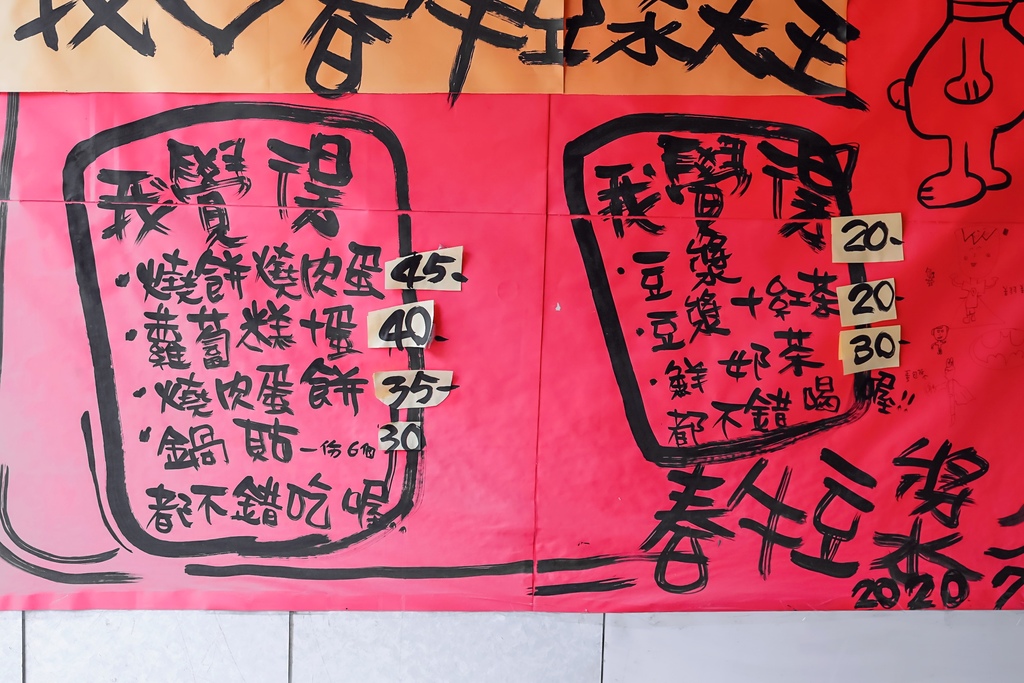 我覺得
·燒餅燒肉蛋 45-
·蘿蔔糕+蛋 40-
·燒肉蛋餅 35-
·鍋貼一份6個 30
都不錯吃喔
我覺得
·豆漿 20-
·豆漿+紅茶 20-
·鮮奶茶 30-
都不錯喝喔!!
春牛豆漿
2020